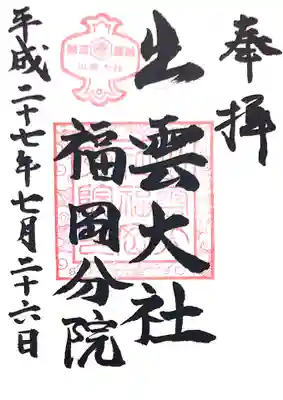 奉拝
出雲大社
福岡分院
平成二十七年七月二十六日